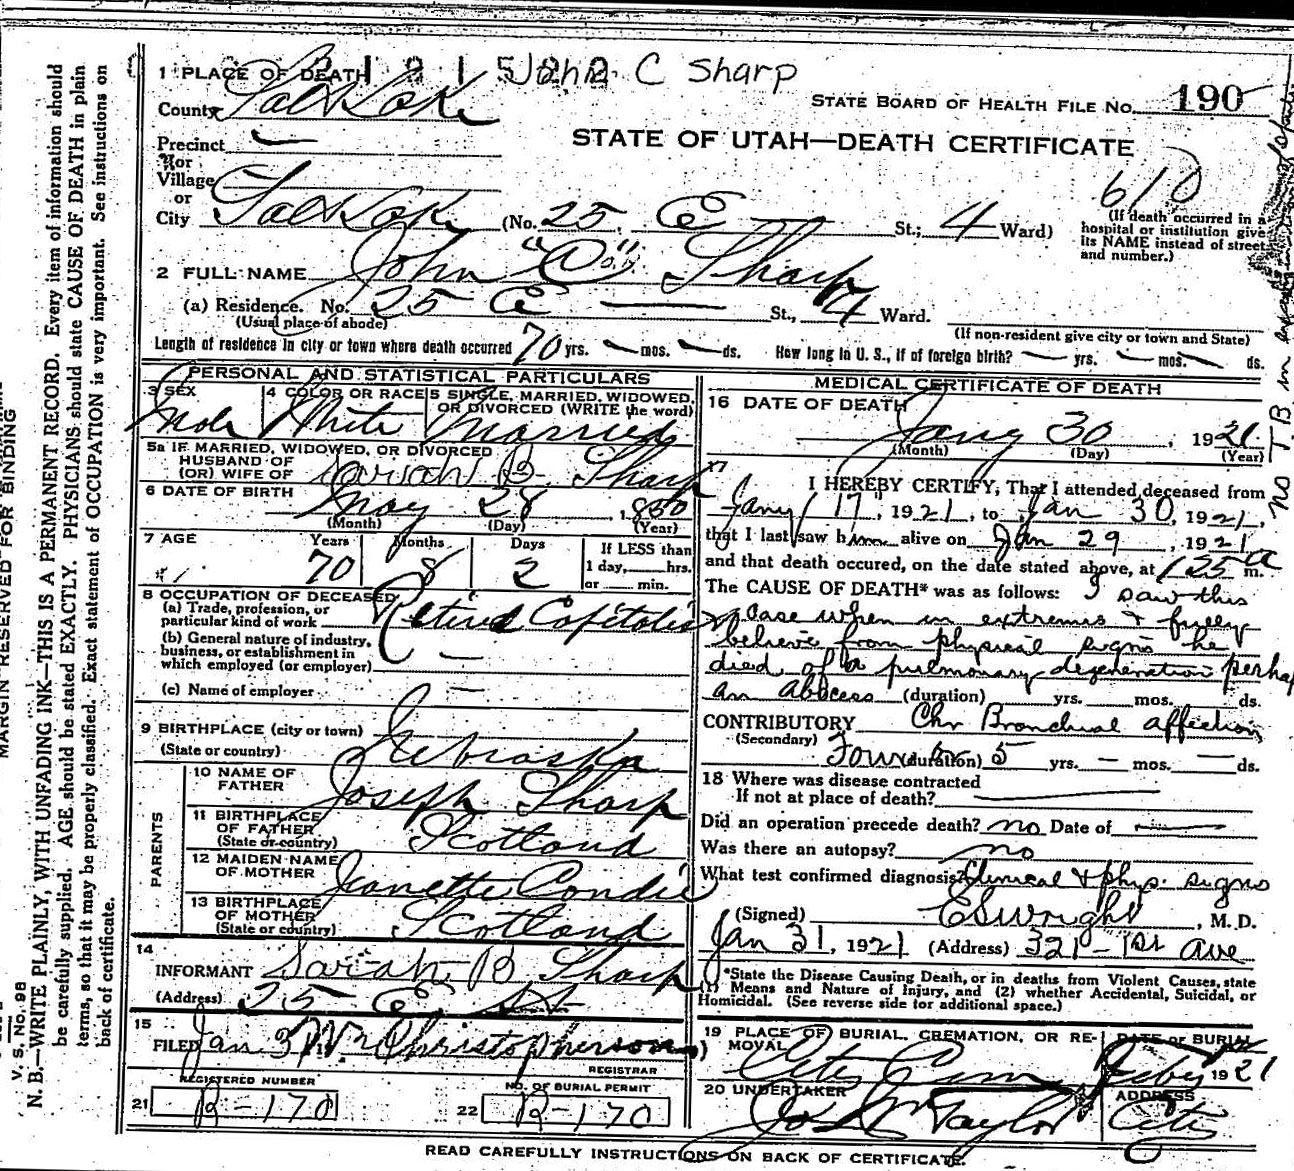 John C Sharp
1 PLACE OF DEATH
STATE BOARD OF HEALTH FILE No. 190
County Salt Lake
STATE OF UTAH—DEATH CERTIFICATE
Precinct —
or
Village
610
or
City Salt Lake (No. 25, E St.; 4 Ward)
(If death occurred in a
hospital or institution give
its NAME instead of street
and number.)
2 FULL NAME John "C" Sharp
(a) Residence. No. 25 E — St., 4 Ward.
(Usual place of abode)
(If non-resident give city or town and State)
Length of residence in city or town where death occurred 70 yrs. — mos. — ds. How long in U. S., if of foreign birth? — yrs. — mos. — ds.
PERSONAL AND STATISTICAL PARTICULARS
3 SEX
Male
4 COLOR OR RACE
White
5 SINGLE, MARRIED, WIDOWED,
OR DIVORCED (WRITE the word)
Married
5a IF MARRIED, WIDOWED, OR DIVORCED
HUSBAND OF
(OR) WIFE OF Sariah B. Sharp
6 DATE OF BIRTH May 28, 1850
(Month) (Day) (Year)
7 AGE Years Months Days
70 8 2
If LESS than
1 day, ____ hrs.
or ____ min.
8 OCCUPATION OF DECEASED
(a) Trade, profession, or
particular kind of work Retired Capitalist
(b) General nature of industry,
business, or establishment in
which employed (or employer) —
(c) Name of employer —
9 BIRTHPLACE (city or town)
(State or country) Nebraska
PARENTS
10 NAME OF
FATHER Joseph Sharp
11 BIRTHPLACE
OF FATHER
(State or country) Scotland
12 MAIDEN NAME
OF MOTHER Jeanette Condie
13 BIRTHPLACE
OF MOTHER
(State or country) Scotland
14
INFORMANT Sariah B Sharp
(Address) 25 - E St
15
FILED Jan 31 Christopherson
REGISTRAR
REGISTERED NUMBER
21 R-170
NO. OF BURIAL PERMIT
22 R-170
MEDICAL CERTIFICATE OF DEATH
16 DATE OF DEATH
Jany 30, 1921
(Month) (Day) (Year)
17
I HEREBY CERTIFY, That I attended deceased from
Jany 17, 1921, to Jan 30, 1921,
that I last saw him alive on Jan 29, 1921
and that death occured, on the date stated above, at 1 25 a m.
The CAUSE OF DEATH* was as follows: I saw this
case when in extremis & fully
believe from physical signs he
died of a pulmonary degeneration perhaps
an abscess (duration) yrs. mos. ds.
CONTRIBUTORY Chr Bronchial affection
(Secondary)
Four or (duration) 5 yrs. — mos. — ds.
18 Where was disease contracted
If not at place of death?
Did an operation precede death? no Date of —
Was there an autopsy? no
What test confirmed diagnosis? Clinical & phys. signs
(Signed) E S Wright, M. D.
Jan 31, 1921 (Address) 321 - 1st Ave
*State the Disease Causing Death, or in deaths from Violent Causes, state
(1) Means and Nature of Injury, and (2) whether Accidental, Suicidal, or
Homicidal. (See reverse side for additional space.)
19 PLACE OF BURIAL, CREMATION, OR RE-
MOVAL City Cem
DATE OF BURIAL
Feby 1st 1921
20 UNDERTAKER
Jos Wm Taylor
ADDRESS
City
READ CAREFULLY INSTRUCTIONS ON BACK OF CERTIFICATE.
MARGIN RESERVED FOR BINDING
V. S. No. 98
N. B.—WRITE PLAINLY, WITH UNFADING INK—THIS IS A PERMANENT RECORD. Every item of information should
be carefully supplied. AGE should be stated EXACTLY. PHYSICIANS should state CAUSE OF DEATH in plain
terms, so that it may be properly classified. Exact statement of OCCUPATION is very important. See instructions on
back of certificate.
no T.B. in